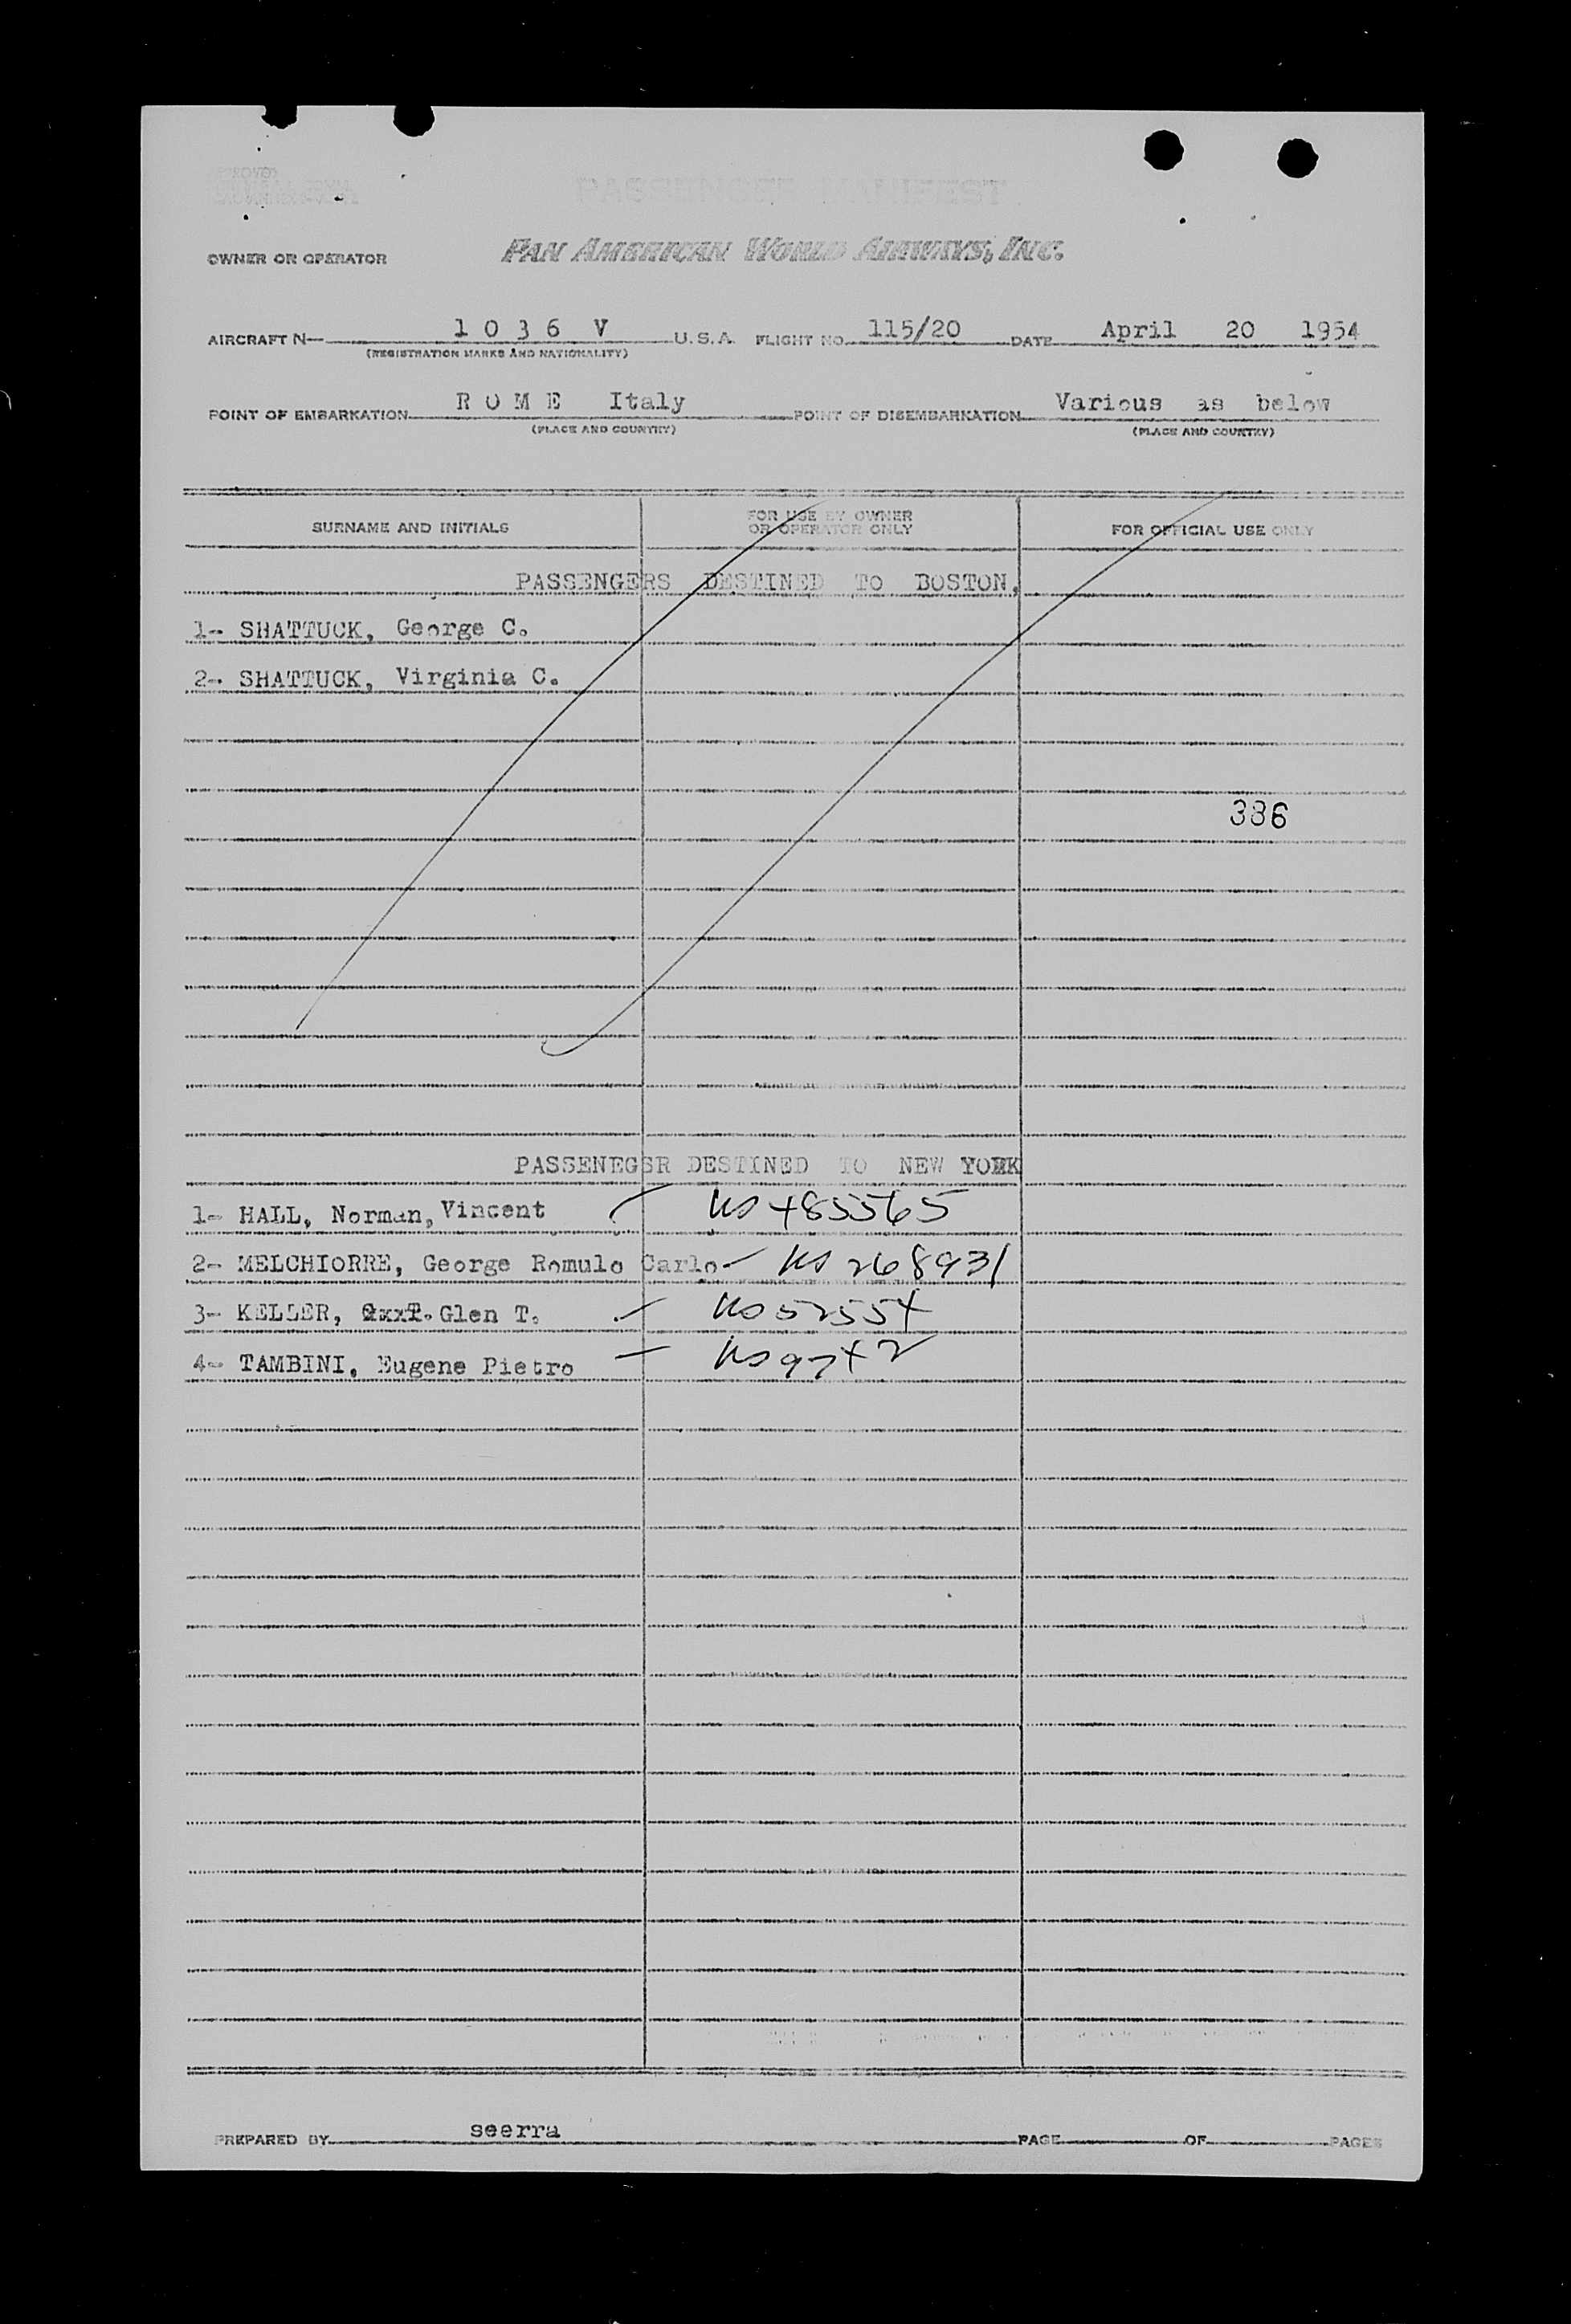 PASSENGER MANIFEST
OWNER OR OPERATOR PAN AMERICAN WORLD AIRWAYS, INC.
AIRCRAFT N- 1 0 3 6 V U.S.A. FLIGHT NO. 115/20 DATE April 20 1954
(REGISTRATION MARKS AND NATIONALITY)
POINT OF EMBARKATION R O M E Italy POINT OF DISEMBARKATION Various as below
(PLACE AND COUNTRY) (PLACE AND COUNTRY)
SURNAME AND INITIALS FOR USE BY OWNER OR OPERATOR ONLY FOR OFFICIAL USE ONLY
PASSENGERS DESTINED TO BOSTON.
1- SHATTUCK, George C.
2- SHATTUCK, Virginia C.
386
PASSENEGSR DESTINED TO NEW YORK
1- HALL, Norman, Vincent US 485565
2- MELCHIORRE, George Romulo Carlo US 268931
3- KELLER, Glen T. US 52554
4- TAMBINI, Eugene Pietro US 9742
PREPARED BY seerra PAGE OF PAGES